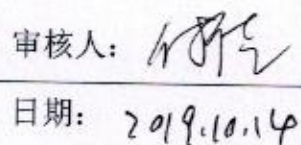 审核人：
日期： 2019.10.14